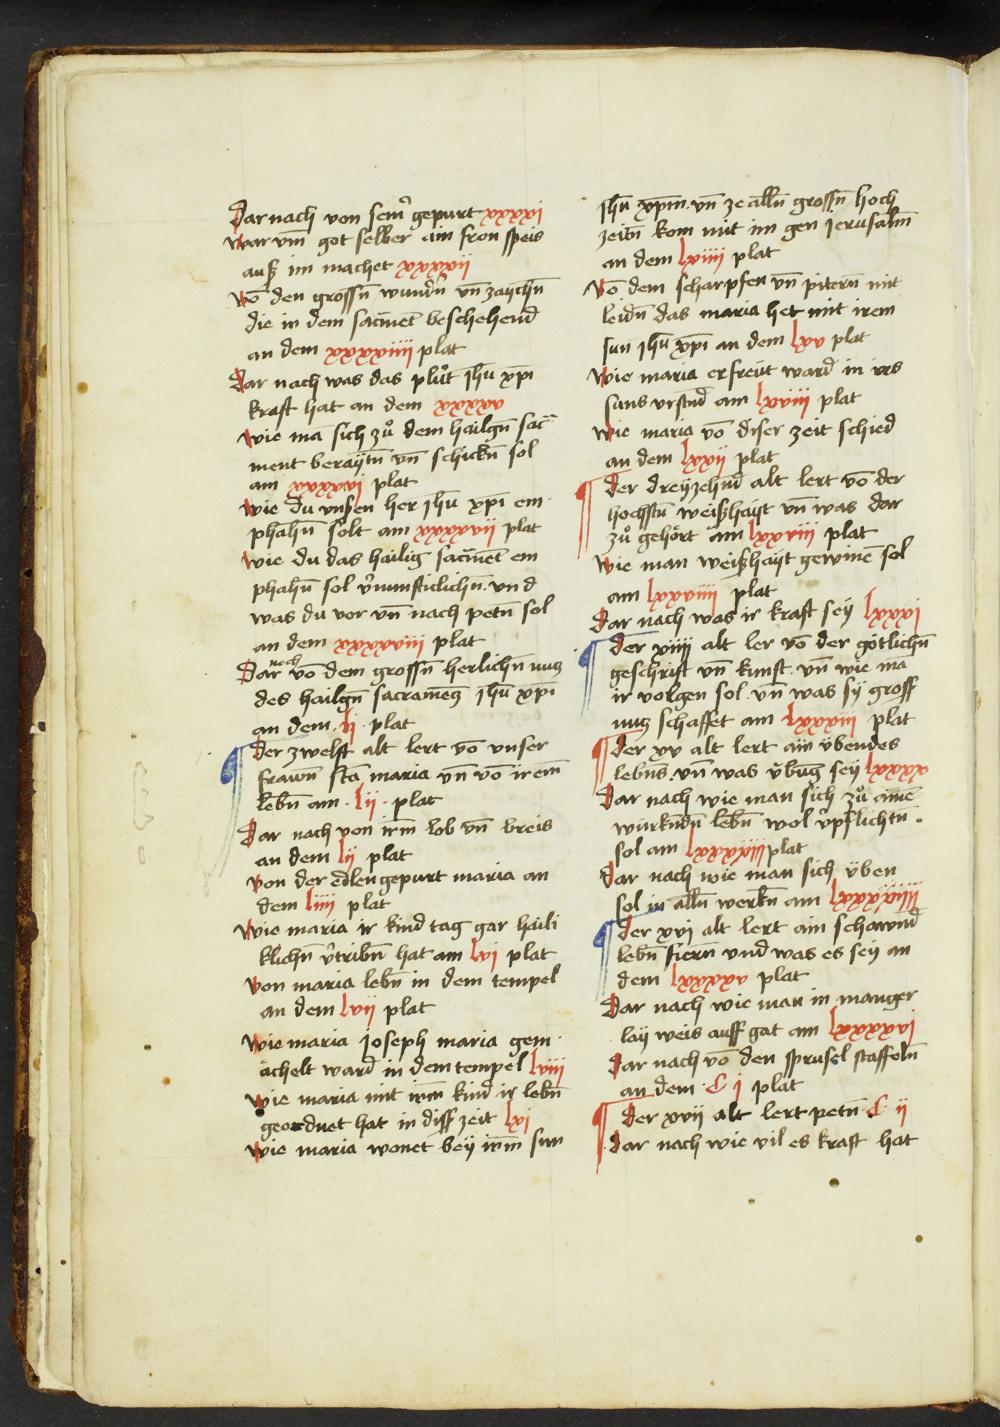 Dar nach von seinr̄ gepurt xxxxi
war vm̄ got selber ain fron speis
auß im machet xxxxii
Vō den grossn̄ wundr̄n vn̄ zaychn̄
die in dem sacmēt beschehend
an dem xxxxiiii plat
Dar nach was das plůt Jhū xp̄i
kraft hat an dem xxxxv
wie mā sich zů dem hailgn̄ sac̄
ment beraytn̄ vn̄ schickn̄ sol
am xxxxvi plat
wie du vnsern her Jhū xp̄i em
phahn̄ solt am xxxxvii plat
wie du das hailig sacm̄et em
phahn̄ sol v̄nunfticlichn̄ vnd
was du vor vn̄ nach petn̄ sol
an dem xxxxviii plat
Dar noch vō dem grossn̄ herlichn̄ nutz
des hailgn̄ sacramētz Jhū xp̄i
an dem · lj · plat
Der zwelft alt lert vō vnser
frawn̄ sctā maria vn̄ vō irem̄
lebn̄ am · lij · plat
Dar nach von irm̄ lob vn̄ breis
an dem lij plat
von der edlen gepurt maria an
dem liiij plat
wie maria ir kind tag gar haili
klichn̄ v̄tribn̄ hat am lvi plat
von maria lebn̄ in dem tempel
an dem lvij plat
wie maria Joseph maria gem
āchelt ward in dem tempel lviij
wie maria mit irm̄ kind ir lebn̄
geordnet hat in diss̄ zeit lxi
wie maria wonet bey irm̄ sun
Jhū xp̄m vn̄ ze alln̄ grossn̄ hoch
zeitn̄ kom mit im gen jerusalm̄
an dem lxiiij plat
Vō dem scharpfen vn̄ pitern̄ mit
leidn̄ das maria het mit irem
sun Jhū xp̄i an dem lxv plat
wie maria erfreüt ward in irs
suns vrstnd̄ am lxviij plat
wie maria vō diser zeit schied
an dem lxxij plat
Der dreyzehnd̄ alt lert vō der
hochstn̄ weißhayt vn̄ was dar
zů gehört am lxxviij plat
wie man weißhayt gewinnē sol
am lxxviiij plat
Dar nach was ir kraft sey lxxxi
Der xiiij alt ler vō der götlichn̄
geschrift vn̄ kunst vn̄ wie mā
ir volgen sol vn̄ was sy gross
nutz schaffet am lxxxiij plat
Der xv alt lert ain v̈bendes
lebn̄s vn̄ was v̈bung sey lxxxx
Dar nach wie man sich zů ainē
würkndn̄ lebn̄ wol v̄pflichtn̄
sol am lxxxxiij plat
Dar nach wie man sich v̈ben
sol in alln̄ werkn̄ am lxxxxiiij
Der xvi alt lert ain schawnd̄
lebn̄ fiern̄ vnd was es sey an
dem lxxxxv plat
Dar nach wie man in manger
lay weis auff gat am lxxxxvi
Dar nach vō den sprusel staffeln̄
an dem · C j plat
Der xvij alt lert petn̄ · C ij
Dar nach wie vil es kraft hat